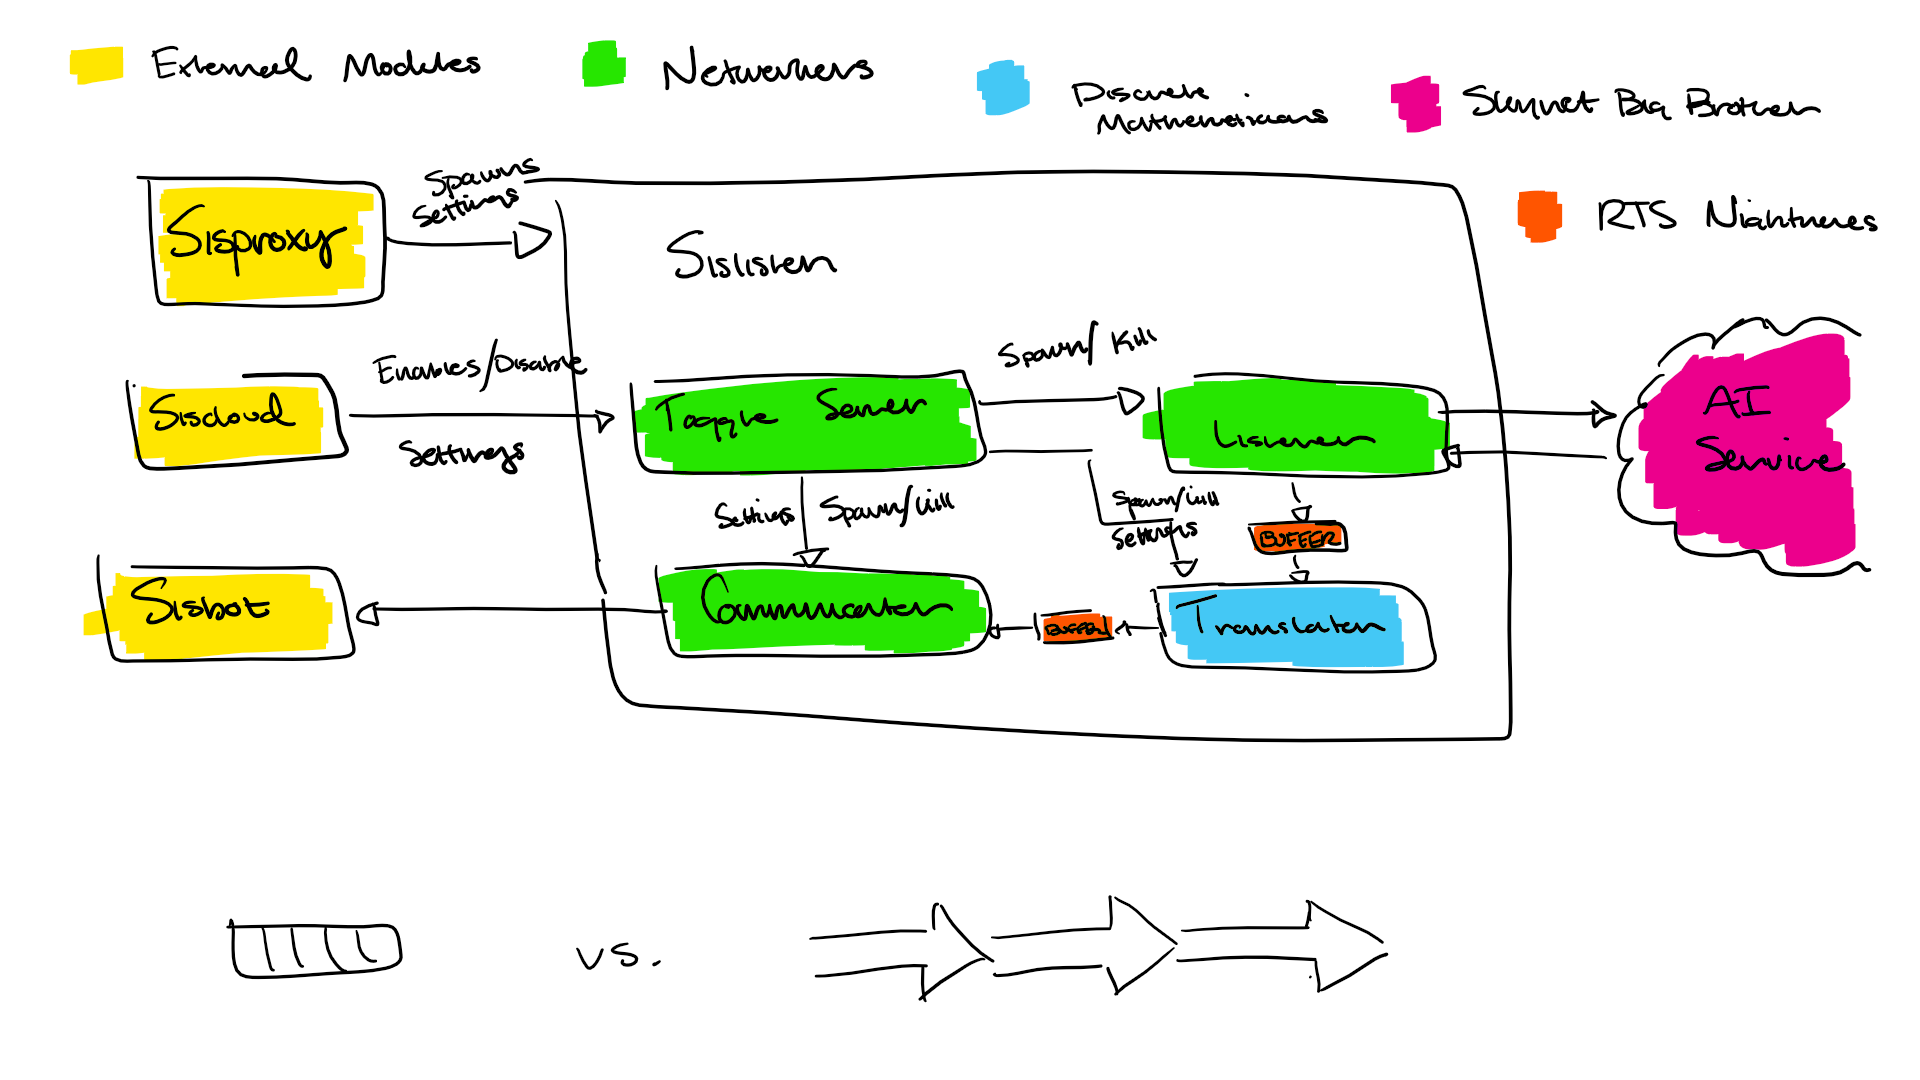 External Modules
Networkers
Discrete
Mathematicians
Skynet Big Brother
RTS Nightmares
Sisproxy
Spawns
Settings
Sislisten
Siscloud
Enables/Disable
Settings
Toggle Server
Spawn/Kill
Listener
AI
Service
Settings
Spawn/Kill
Spawn/Kill
Settings
BUFFER
Sisbot
Communicator
BUFFER
Translator
vs.